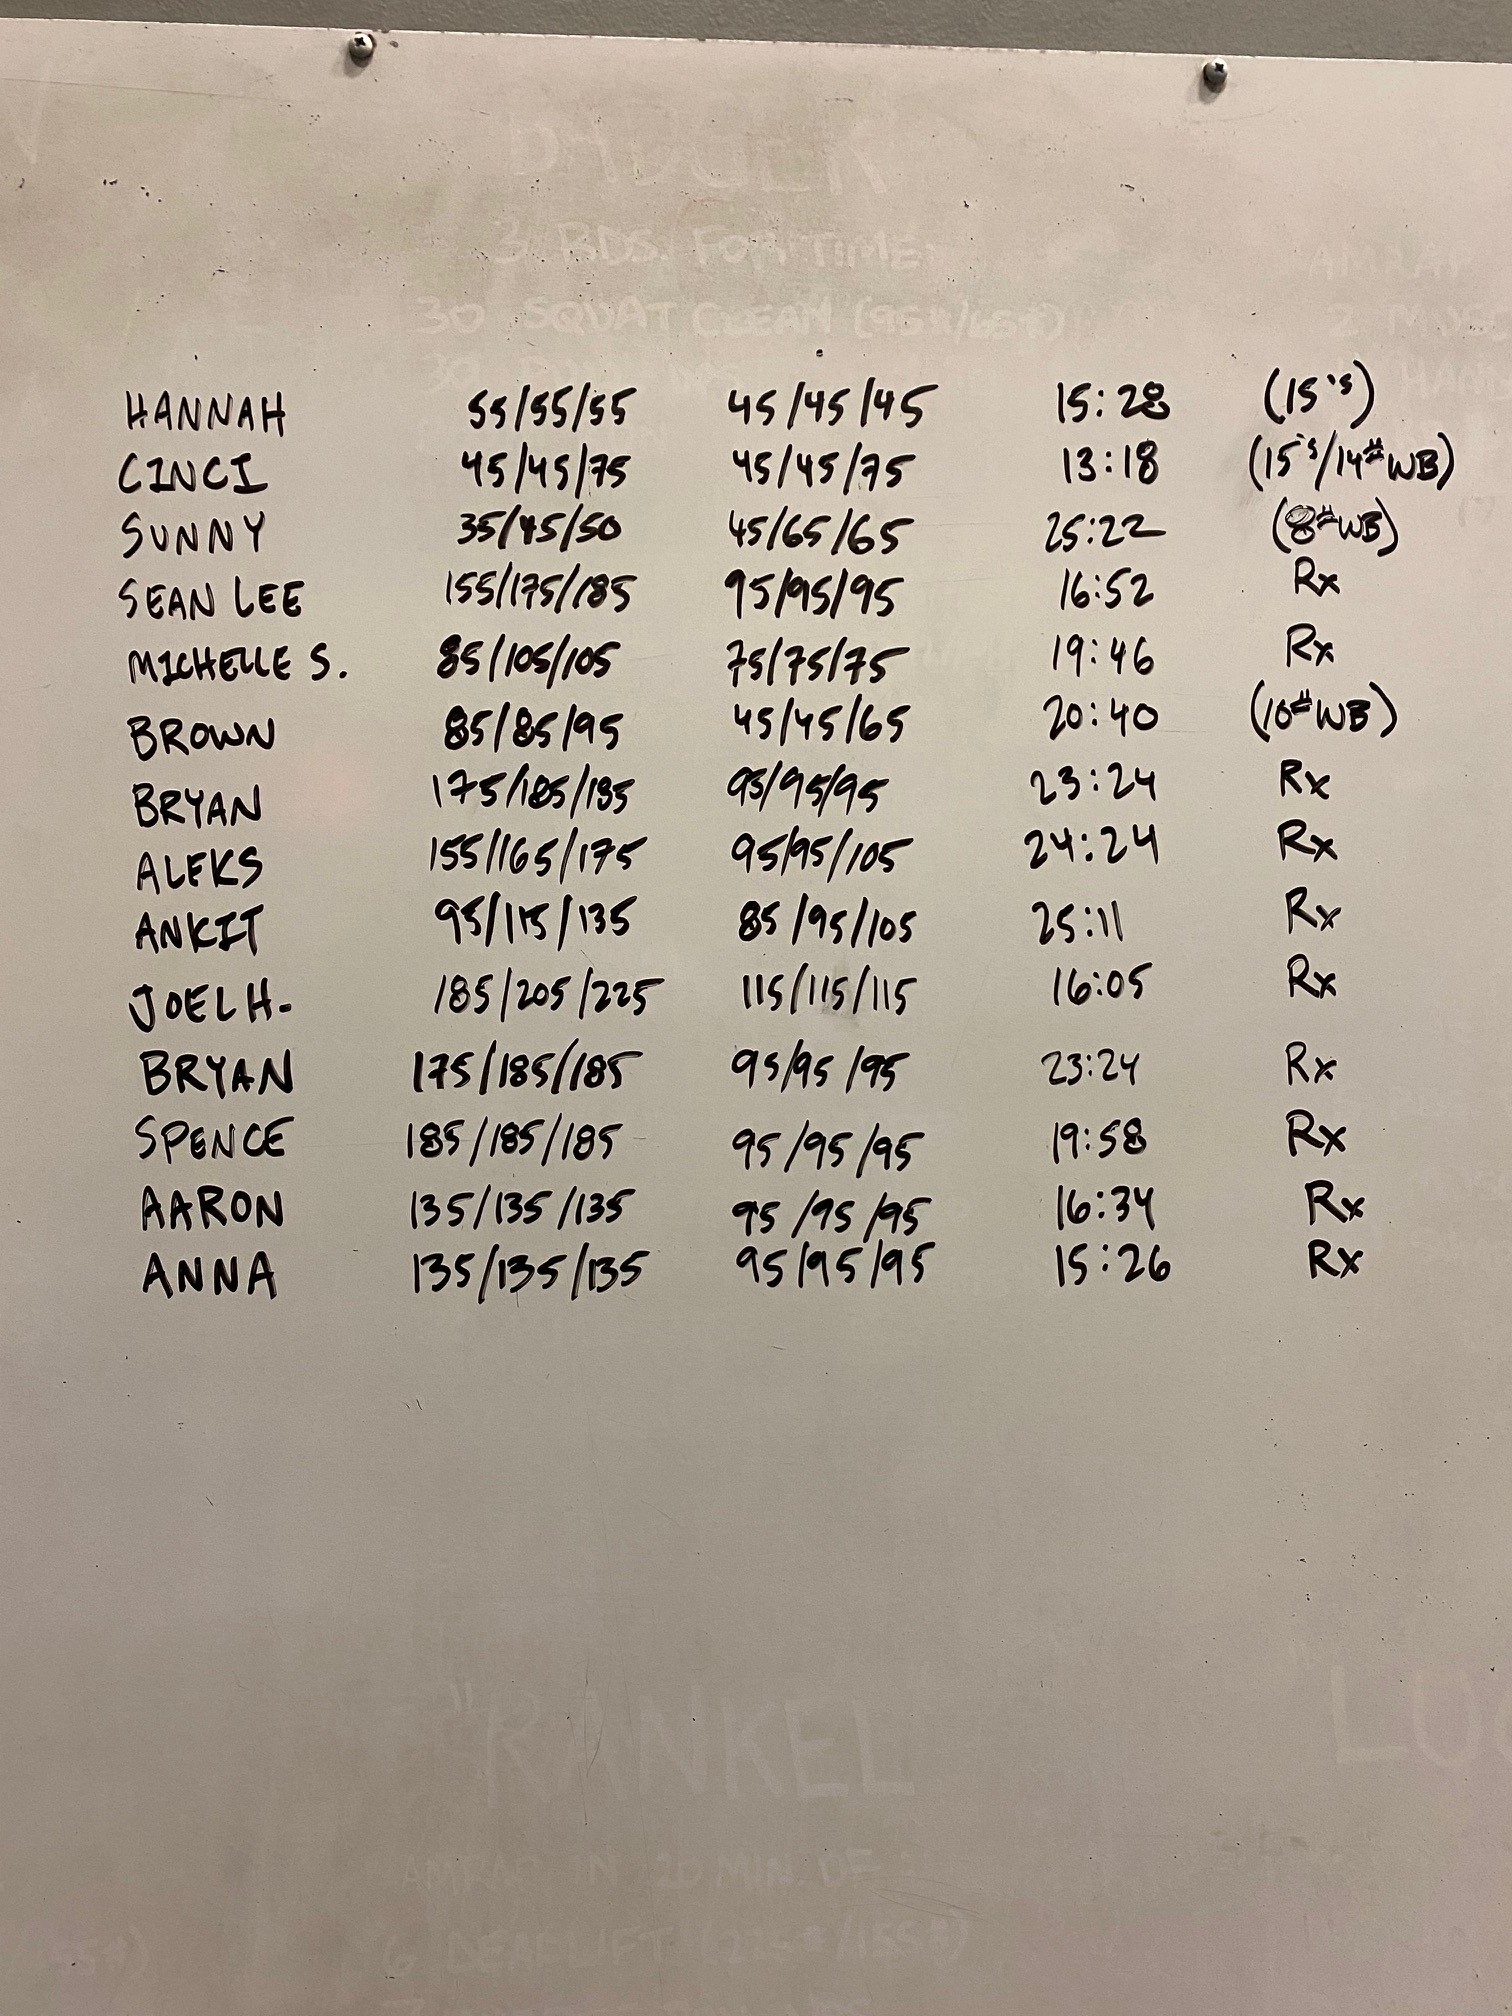 3 RDS. FOR TIME
30 SQUAT CLEAN (95#/65#)
30
AMRAP
2 MUSC
HAND
HANNAH 55/55/55 45/45/45 15:28 (15's)
CINCI 45/45/75 45/45/75 13:18 (15's/14# WB)
SUNNY 35/45/50 45/65/65 25:22 (8# WB)
SEAN LEE 155/175/185 95/95/95 16:52 Rx
MICHELLE S. 85/105/105 75/75/75 19:46 Rx
BROWN 85/85/95 45/45/65 20:40 (10# WB)
BRYAN 175/185/185 95/95/95 23:24 Rx
ALEKS 155/165/175 95/95/105 24:24 Rx
ANKIT 95/115/135 85/95/105 25:11 Rx
JOEL H. 185/205/225 115/115/115 16:05 Rx
BRYAN 175/185/185 95/95/95 23:24 Rx
SPENCE 185/185/185 95/95/95 19:58 Rx
AARON 135/135/135 95/95/95 16:34 Rx
ANNA 135/135/135 95/95/95 15:26 Rx
"RANKEL"
AMRAP IN 20 MIN. OF:
6 DEADLIFT (225#/155#)